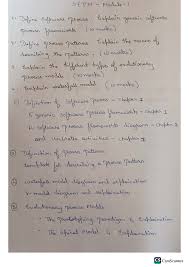 SEPM - Module - 1
1. Define software process. Explain generic software process framework (10 marks)
2. Define process pattern. Explain the means of describing the pattern. (10 marks)
3. Explain the different types of evolutionary process models (10 marks)
4. Explain waterfall model (10 marks)
① Definition of software process - chap-1
software process framework - chap-2
software process framework diagram - chap-2
and activities - chap-2
② Definition of process pattern
template for describing a process pattern
③ waterfall model diagram and explanation
V model diagram and explanation
④ Evolutionary process models
• The prototyping paradigm & Explanation
• The spiral model & Explanation
CS CamScanner